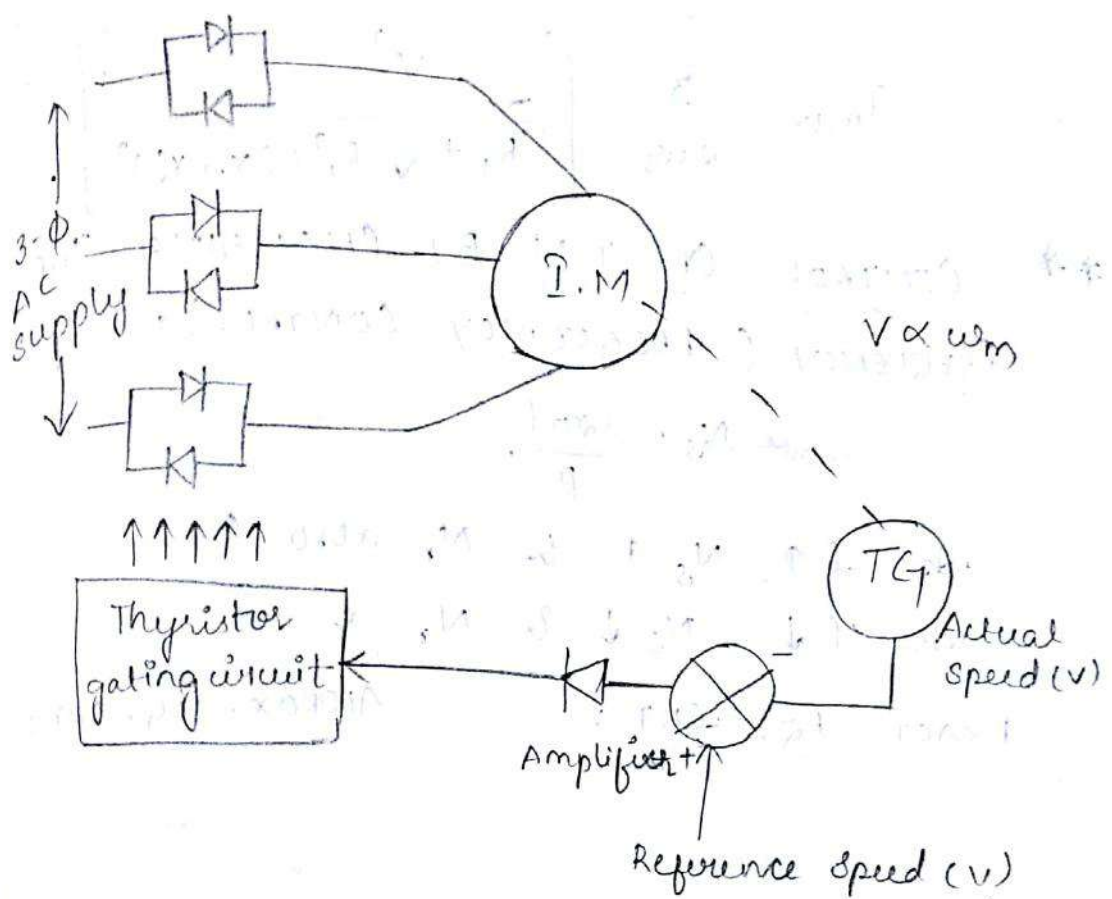 3-Φ
AC
supply
I.M
V ∝ ωm
TG
Actual
Speed (v)
Thyristor
gating circuit
Amplifier
+
-
Reference Speed (v)